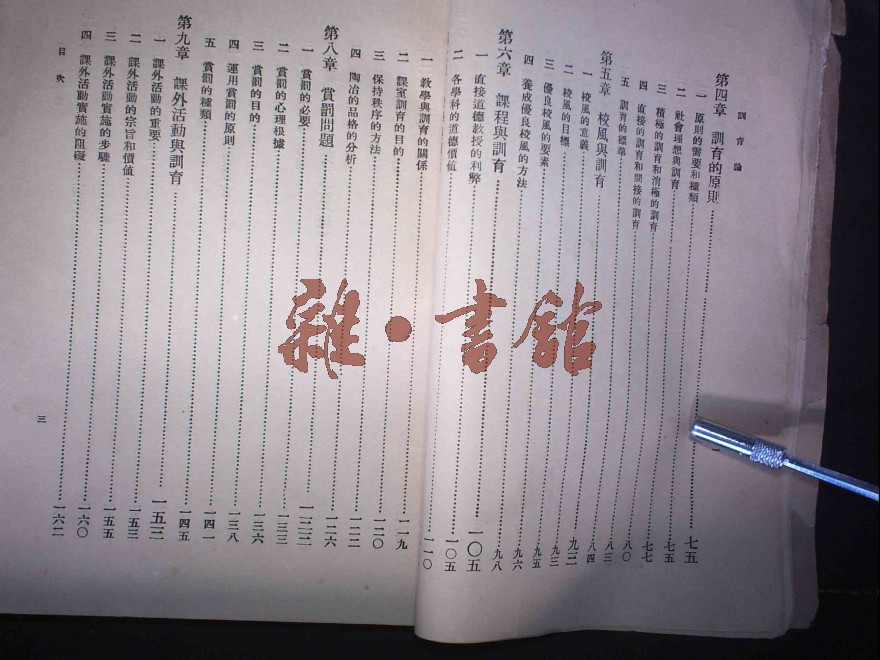 訓育論
第四章 訓育的原則……七五
一 原則的需要和種類……七五
二 社會理想與訓育……七七
三 積極的訓育和消極的訓育……八〇
四 直接的訓育和間接的訓育……八三
五 訓育的標準……八四
第五章 校風與訓育……九二
一 校風的意義……九三
二 校風的目標……九五
三 優良校風的要素……九六
四 養成優良校風的方法……九八
第六章 課程與訓育……一〇五
一 直接道德教授的利弊……一〇五
二 各學科的道德價值……一一〇
一 教學與訓育的關係……一一九
二 課室訓育的目的……一二〇
三 保持秩序的方法……一二二
四 陶冶的品格的分析……一二六
第八章 賞罰問題……一三三
一 賞罰的必要……一三三
二 賞罰的心理根據……一三六
三 賞罰的目的……一三八
四 運用賞罰的原則……一四一
五 賞罰的種類……一四五
第九章 課外活動與訓育……一五三
一 課外活動的重要……一五三
二 課外活動的宗旨和價值……一五五
三 課外活動實施的步驟……一六〇
四 課外活動實施的阻礙……一六二
目次
三
雜·書館